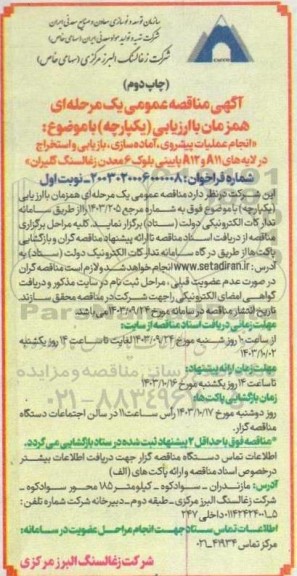 سازمان توسعه و نوسازی معادن و صنایع معدنی ایران
شرکت تهیه و تولید مواد معدنی ایران (سهامی خاص)
شرکت زغالسنگ البرز مرکزی (سهامی خاص)
(چاپ دوم)
آگهی مناقصه عمومی یک مرحله‌ای
همزمان با ارزیابی (یکپارچه) با موضوع:
«انجام عملیات پیشروی، آماده‌سازی، بازیابی و استخراج
در لایه‌های A11 و A12 پایینی بلوک ۶ معدن زغالسنگ کلیران»
شماره فراخوان: ۲۰۰۳۰۲۰۰۰۶۰۰۰۰۰۸- نوبت اول
این شرکت در نظر دارد مناقصه عمومی یک مرحله ای همزمان با ارزیابی
(یکپارچه) با موضوع فوق به شماره مرجع ۱۴۰۳/۲۰۵ را از طریق سامانه
تدارکات الکترونیکی دولت (ستاد) برگزار نماید. کلیه مراحل برگزاری
مناقصه از دریافت اسناد مناقصه تا ارائه پیشنهاد مناقصه گران و بازگشایی
پاکت ها از طریق درگاه سامانه تدارکات الکترونیک دولت (ستاد) به
آدرس: www.setadiran.ir انجام خواهد شد و لازم است مناقصه گران
در صورت عدم عضویت قبلی، مراحل ثبت نام در سایت مذکور و دریافت
گواهی امضای الکترونیکی را جهت شرکت در مناقصه محقق سازند.
تاریخ انتشار مناقصه در سامانه مورخ ۱۴۰۳/۰۹/۲۴ می باشد.
مهلت زمانی دریافت اسناد مناقصه از سایت:
از ساعت ۱۰ روز شنبه مورخ ۱۴۰۳/۰۹/۲۴ لغایت تا ساعت ۱۴ روز یکشنبه
۱۴۰۳/۱۰/۰۲
مهلت زمان ارائه پیشنهاد:
تا ساعت ۱۴ روز یکشنبه مورخ ۱۴۰۳/۱۰/۱۶
زمان بازگشایی پاکت ها:
روز دوشنبه مورخ ۱۴۰۳/۱۰/۱۷ رأس ساعت ۱۱ در سالن اجتماعات دستگاه
مناقصه گزار.
*مناقصه فوق با حداقل ۲ پیشنهاد ثبت شده در ستاد بازگشایی می گردد.*
اطلاعات تماس دستگاه مناقصه گزار جهت دریافت اطلاعات بیشتر
درخصوص اسناد مناقصه و ارائه پاکت های (الف)
آدرس: مازندران ـ سوادکوه ـ کیلومتر ۱۸۵ محور سوادکوه ـ
شرکت زغالسنگ البرز مرکزی ـ طبقه دوم ـ دبیرخانه شرکت شماره تلفن:
داخلی ۲۴۷
اطلاعات تماس ستاد جهت انجام مراحل عضویت در سامانه:
مرکز تماس ۴۱۹۳۴-۰۲۱
شرکت زغالسنگ البرز مرکزی